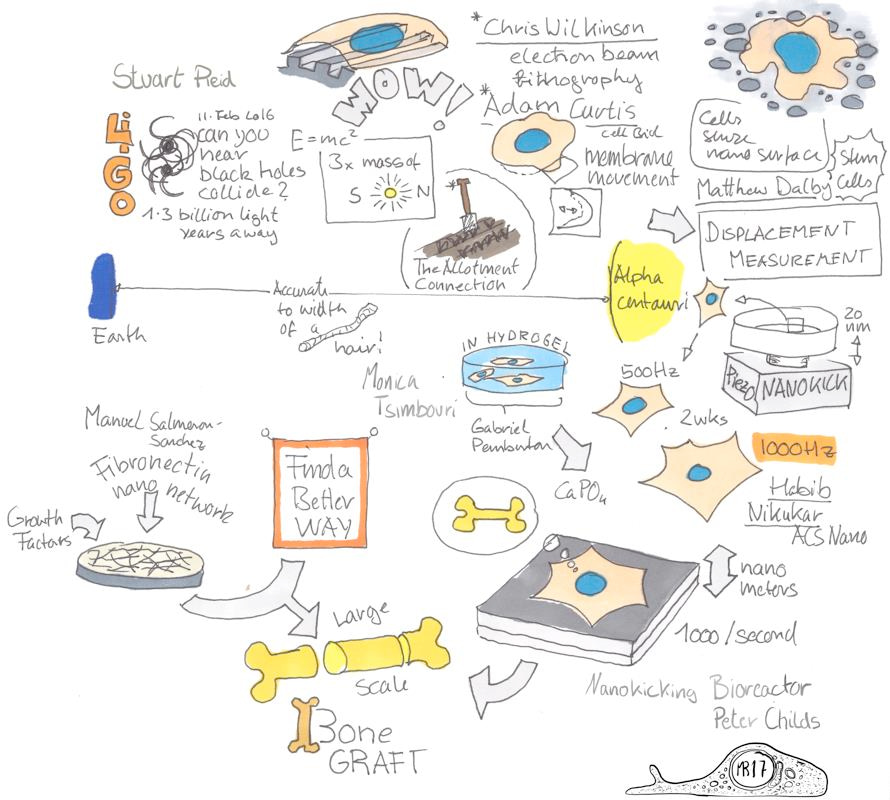 * Chris Wilkinson
electron beam
lithography
WOW!
* Adam Curtis
Cell Biol
membrane
movement
Stuart Reid
LIGO
11. Feb 2016
can you
hear
black holes
collide?
1.3 billion light
years away
E=mc²
3x mass of
S N
*
The Allotment
Connection
Cells
sense
nano surface
Stem
Cells
Matthew Dalby
DISPLACEMENT
MEASUREMENT
Earth
Accurate
to width
of a
hair!
Alpha
centauri
20
nm
Piezo NANOKICK
IN HYDROGEL
Monica
Tsimbouri
Gabriel
Pemburton
CaPO₄
500Hz
2wks
1000Hz
Habib
Nikukar
ACS Nano
Manuel Salmeron-
Sanchez
Fibronectin
nano network
Growth
Factors
Find a
Better
WAY
Large
Scale
Bone
GRAFT
nano
meters
1000/second
Nanokicking Bioreactor
Peter Childs
MR17